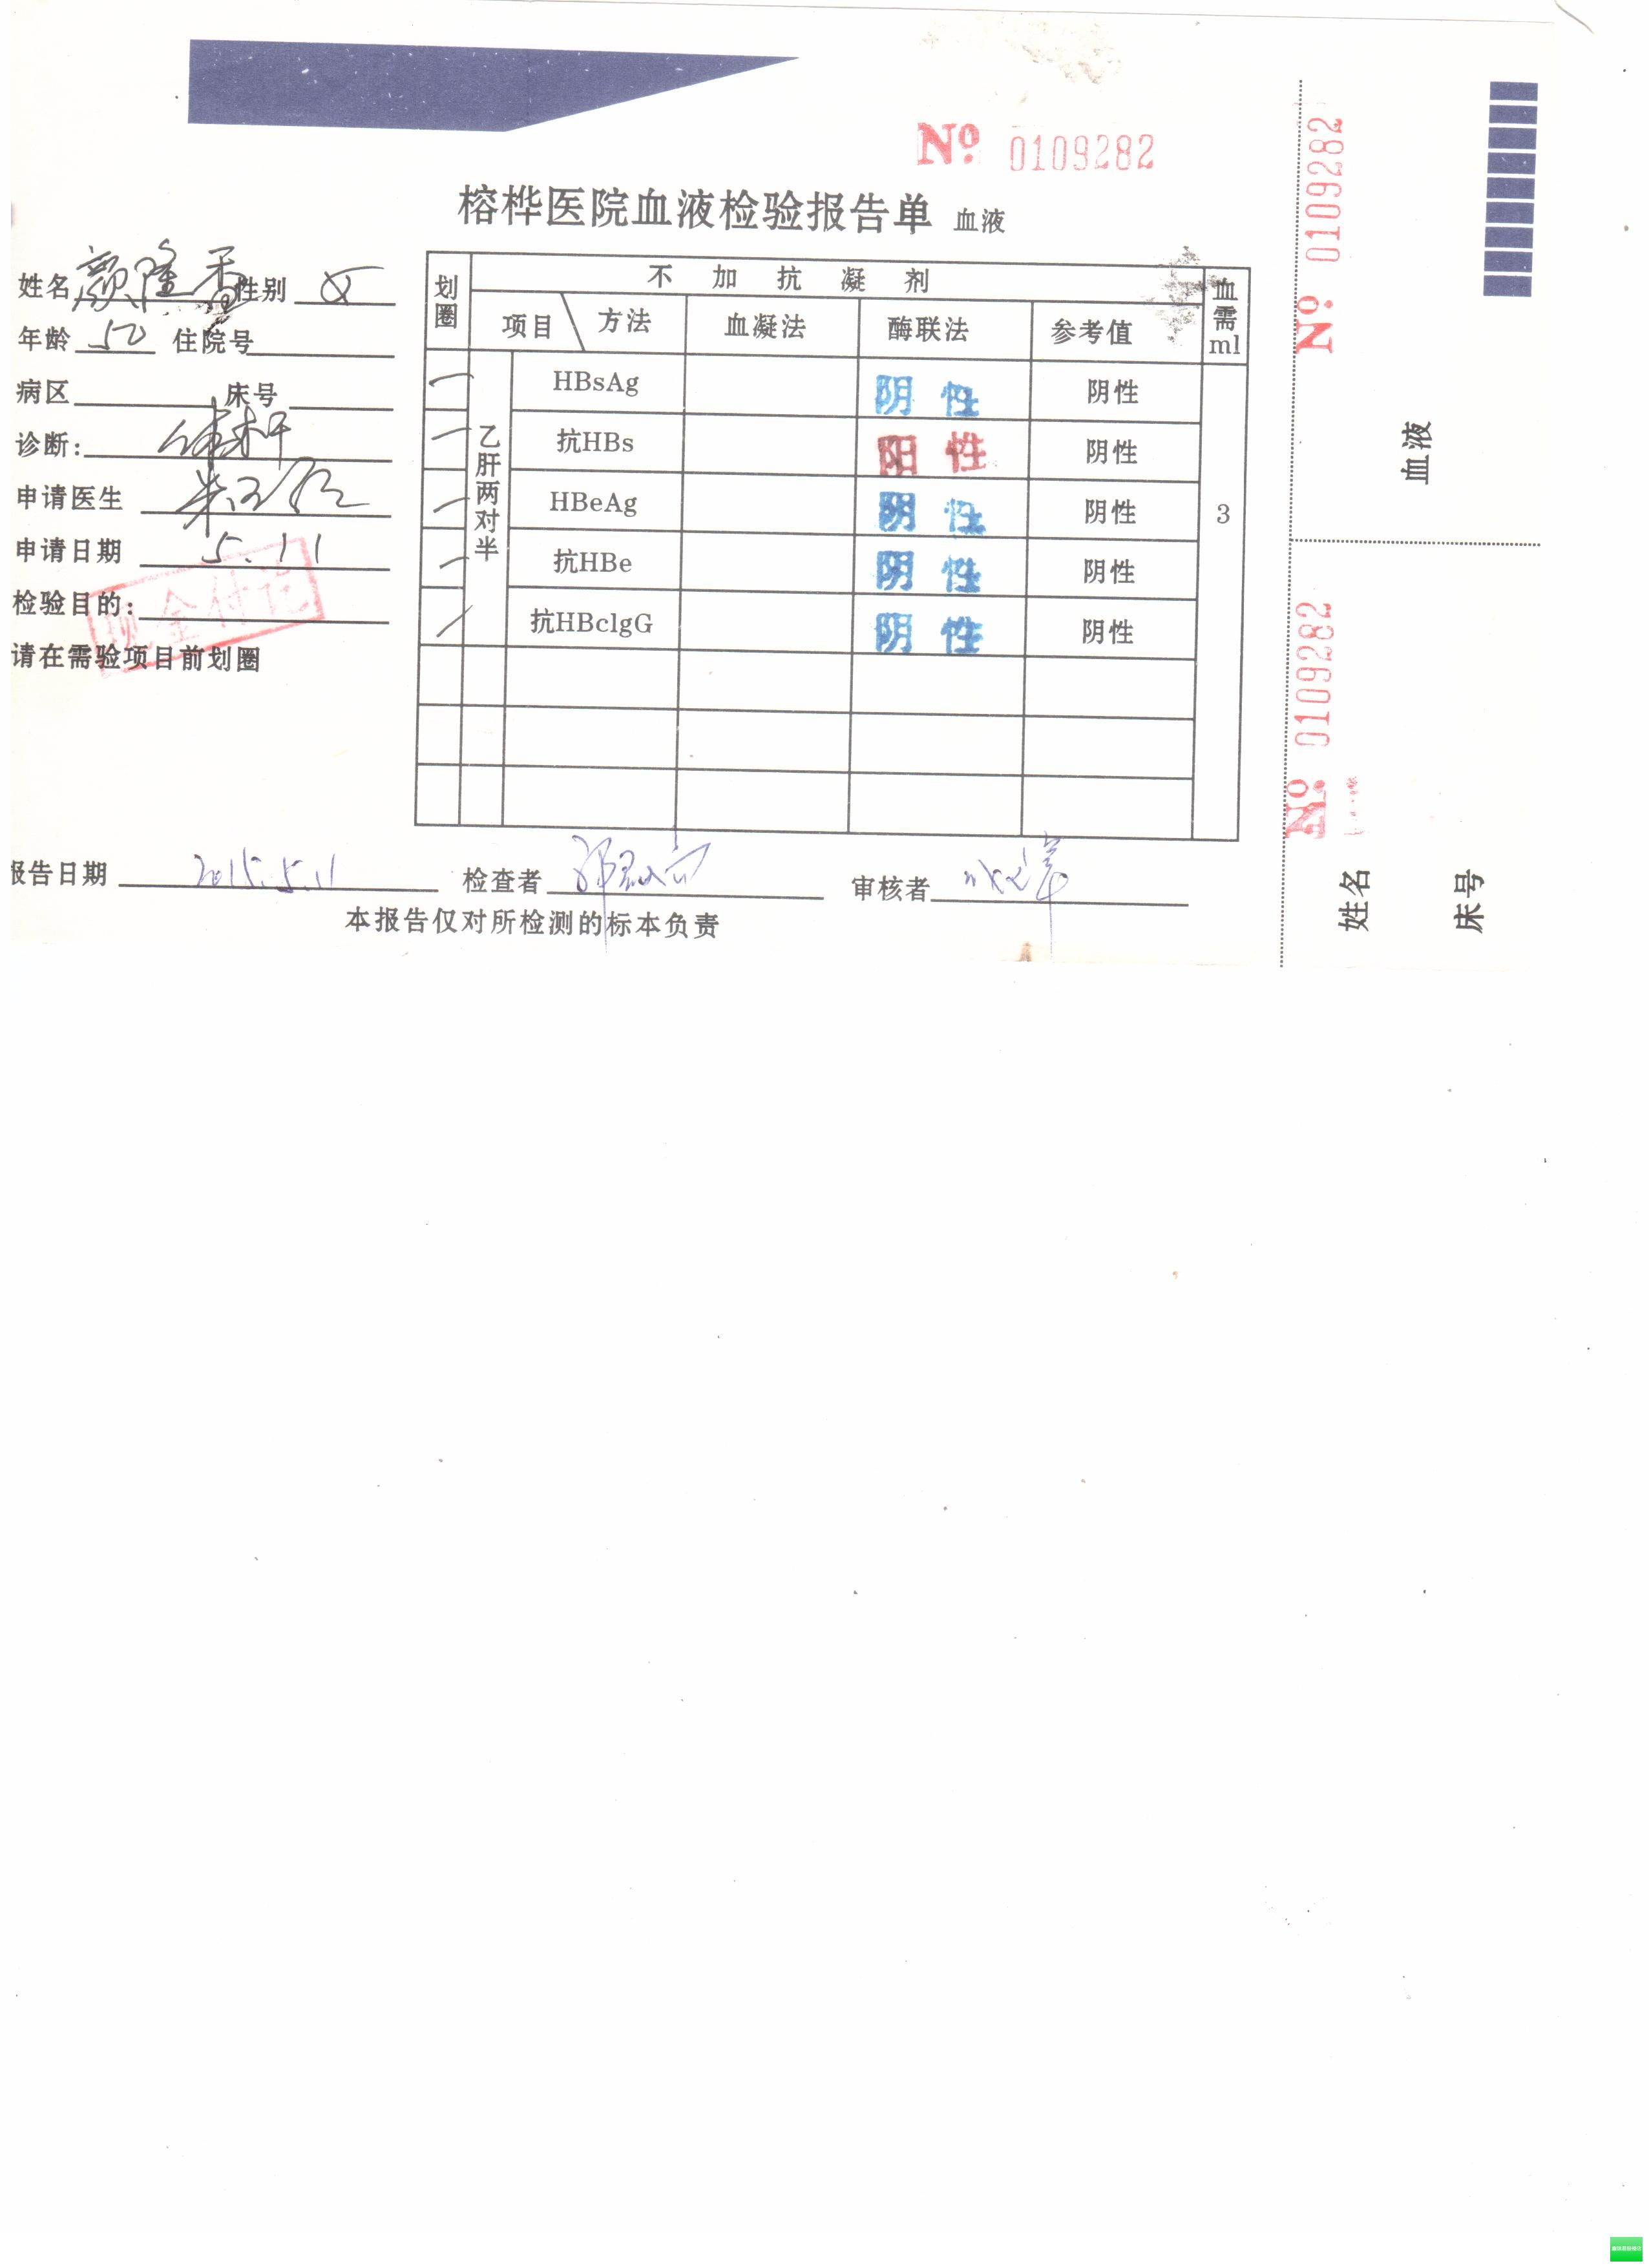 № 0109282
榕桦医院血液检验报告单 血液
姓名 颜隆香 性别 女
年龄 50 住院号
病区 床号
诊断: 体检
申请医生
申请日期 5.11
检验目的:
现金付讫
请在需验项目前划圈
划圈 不加抗凝剂 血需ml
项目 方法 血凝法 酶联法 参考值
乙肝两对半
HBsAg 阴性 阴性
抗HBs 阳性 阴性
HBeAg 阴性 阴性 3
抗HBe 阴性 阴性
抗HBclgG 阴性 阴性
报告日期 2015.5.11 检查者 审核者
本报告仅对所检测的标本负责
№ 0109282
血液
№ 0109282
姓名
床号